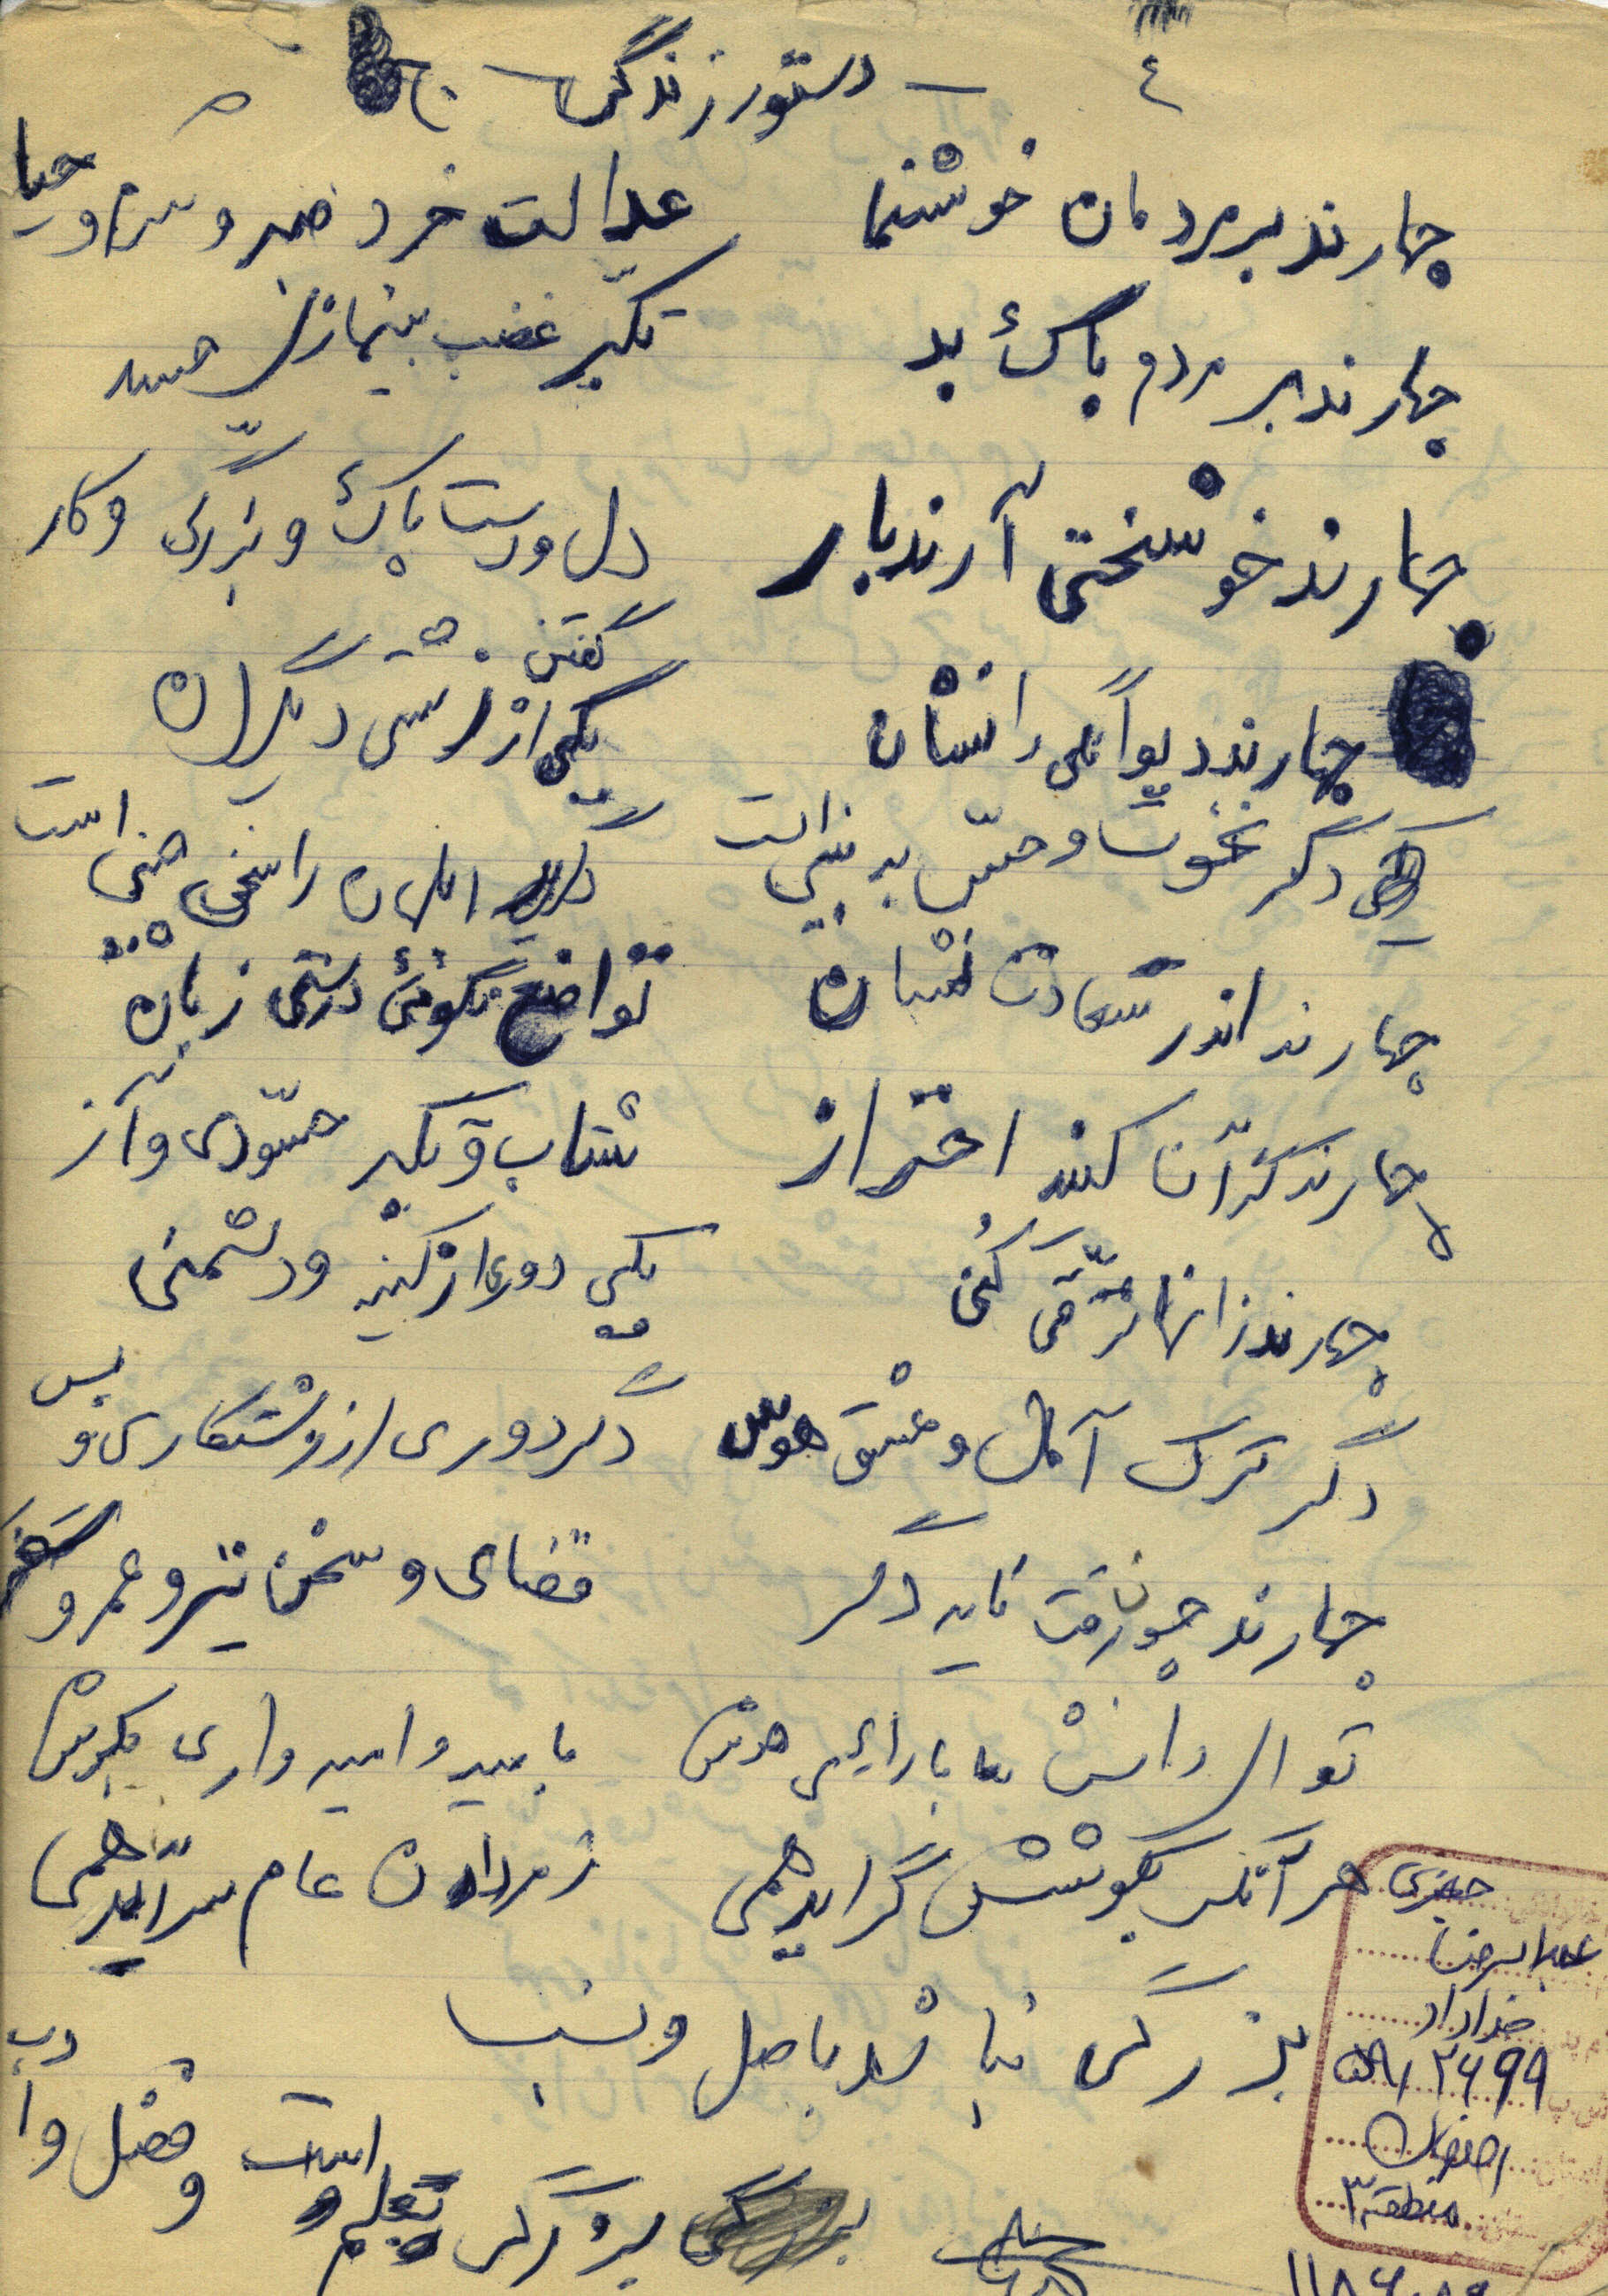 ٤ — دستور زندگی
چهارند بر مردمان خوشنما عدالت خرد صبر و شرم و حیا
چهارند بر مردم پاک بد تکبر غضب حسد
چهارند خوشبختی آرند بار دل و دست پاک و بزرگی و کار
چهارند دیوانگی را نشان یکی گفتن از زشتی دیگران
دگر نخوت و حس دگر را است
چهارند اندر سعادت نشان تواضع نکوئی درستی زبان
چهارند کز آنها کنند احتراز شتاب و تکبر حسودی و آز
چهارند زانها ترقی کنی یکی دوری از کینه و دشمنی
دگر ترک آمال و عشق هوس دگر دوری از زشتکاری و بس
چهارند چون رفت ناید دگر قضای و سخن تیر و عمر
تو ار دانش با رای هوش بامید و امیدواری بکوش
هر آنکس بکوشش گراید همی ز مردان عام سرآید همی
بزرگی نباشد باصل و نسب
بزرگی تعلم است و فضل و ادب
جعفری
عبدالرضا
خداداد
اصفهان
منطقه ۳